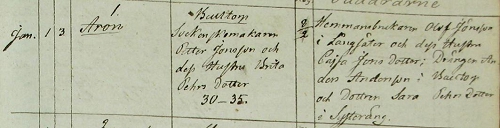 Faddrarne
Jan. 1 3 Aron
Buittom
Sockenskomakaren
Petter Jonsson och
deſs Hustru Brita
Pehrs Dotter
30-35.
2/2 Hemmansbrukaren Olof Jönsson
i Långsäter och deſs Hustru
Cajsa Joris Dotter; Drängen An
ders Anderson i
och Dottren Sara Pehrs Dotter
i
2